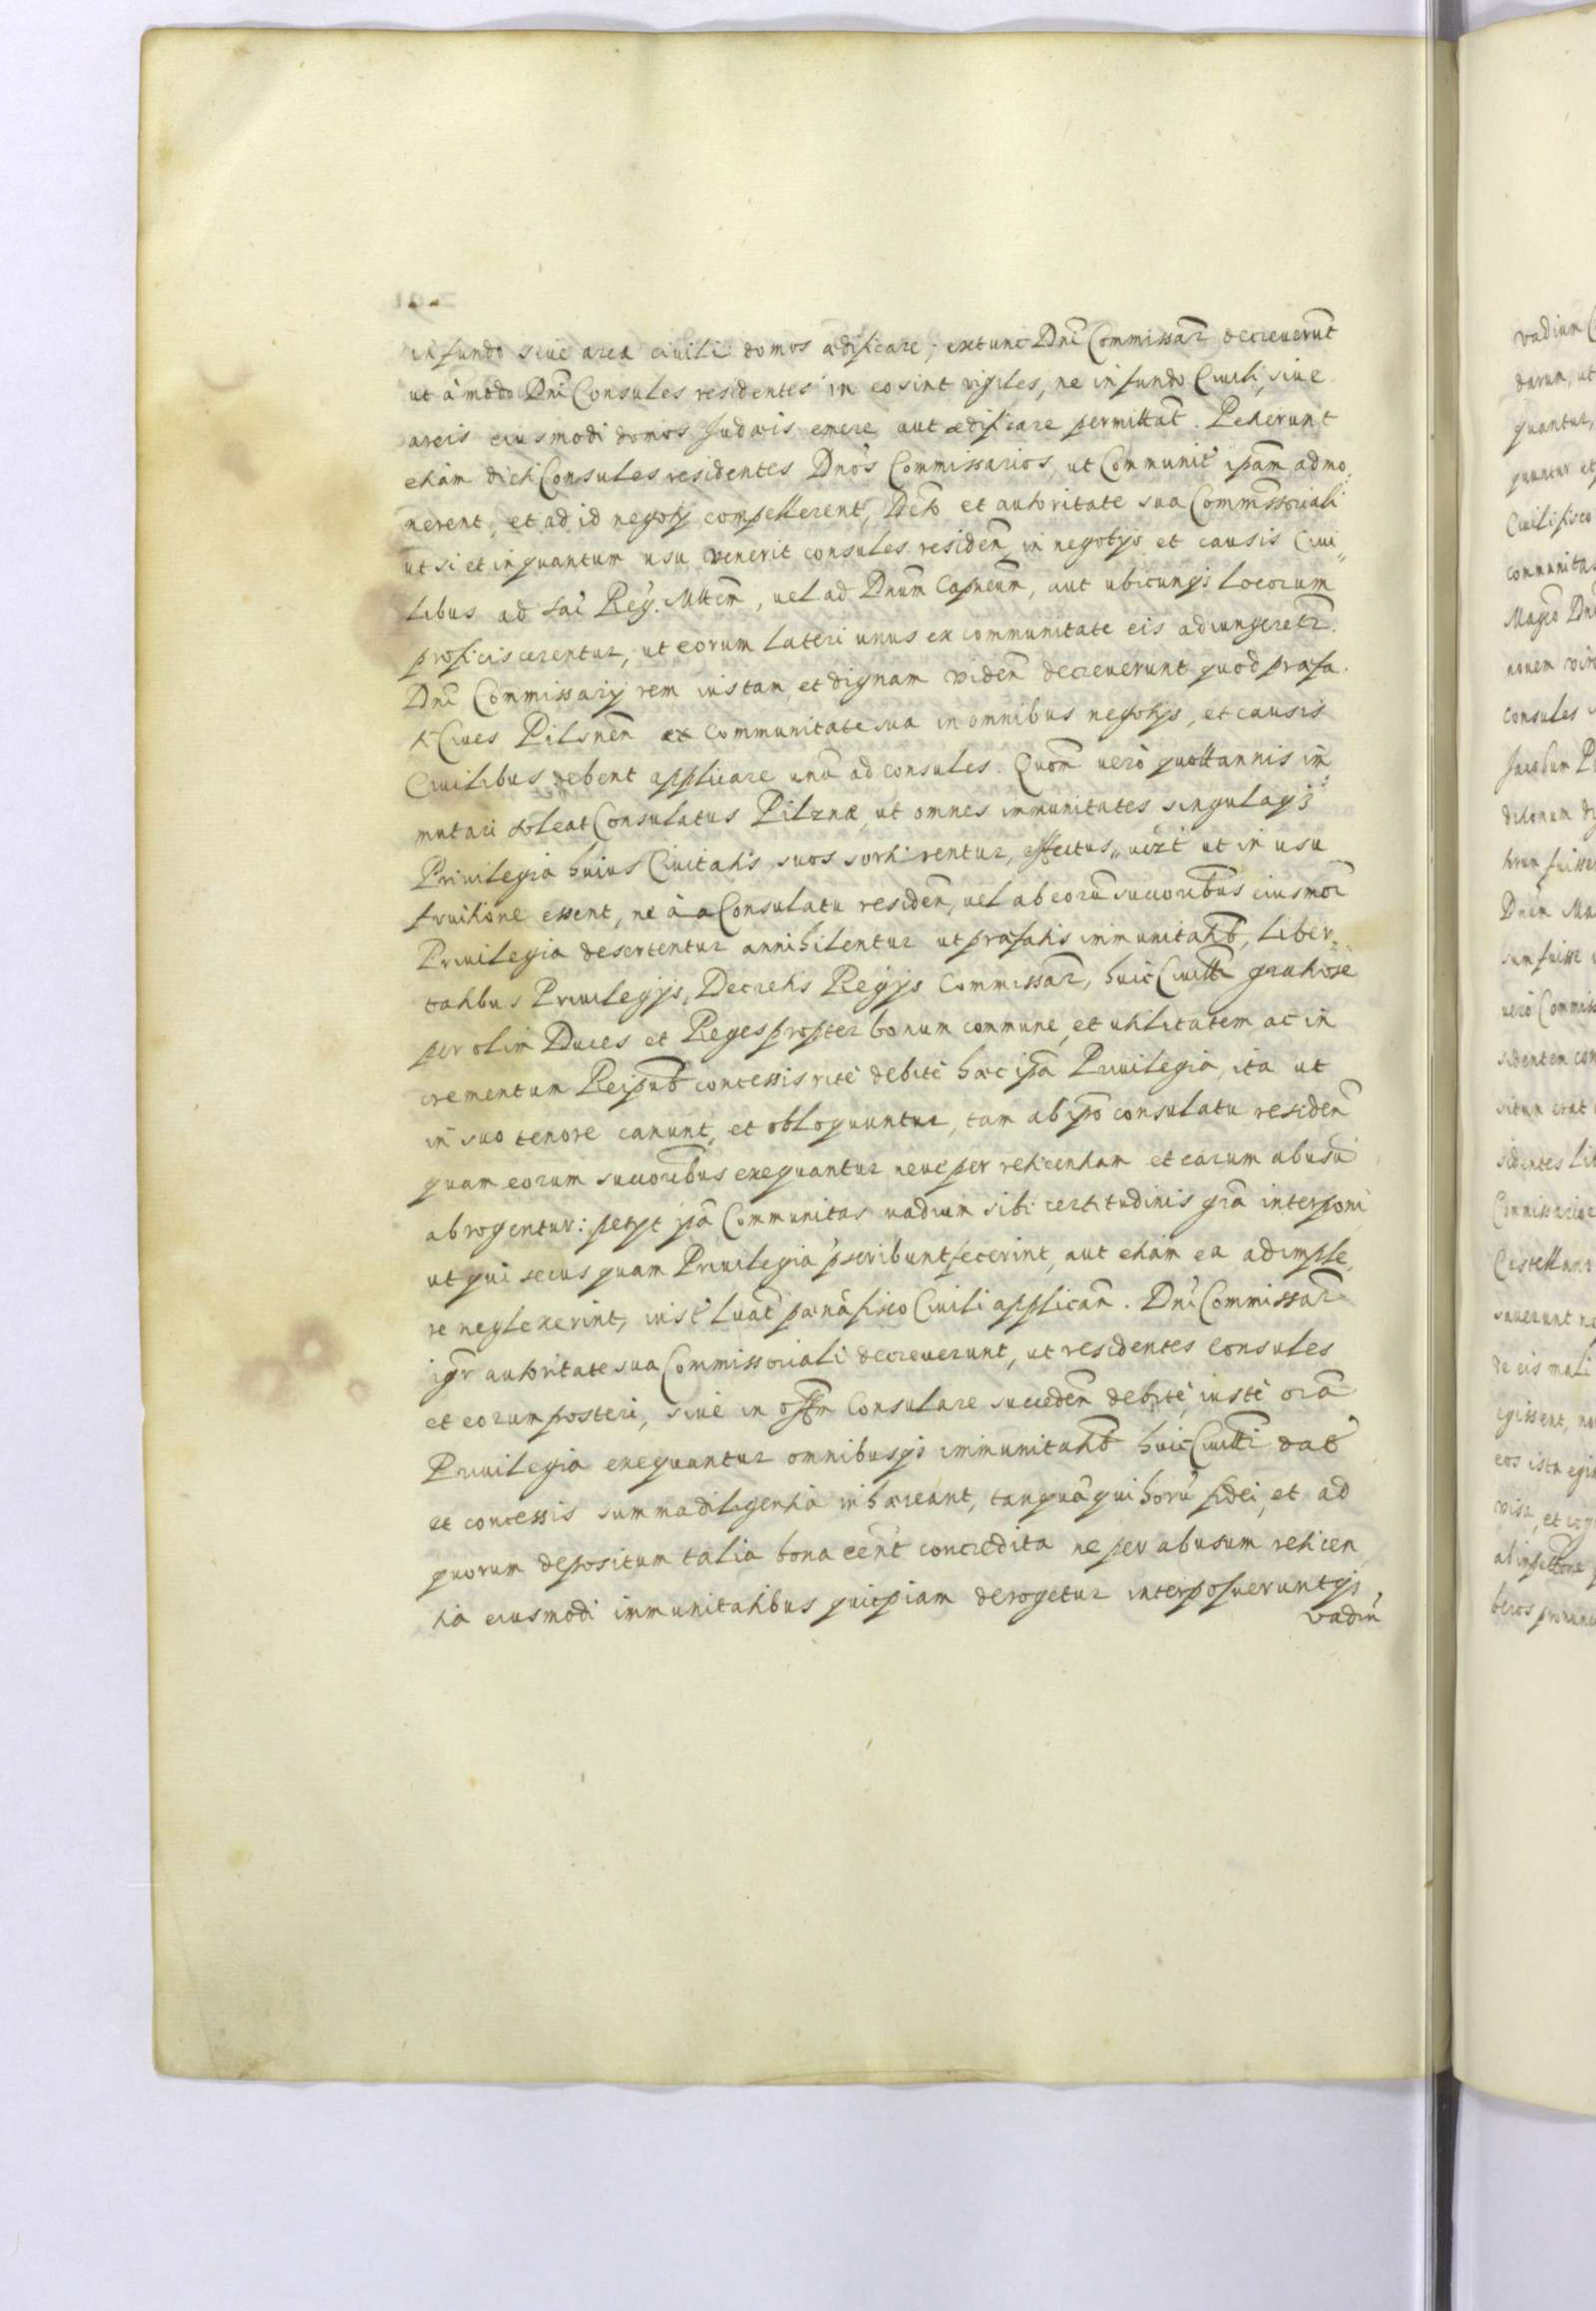 in fundo siue area ciuili domos ædificare; extunc Dni Commissar decreuerunt
ut àmodo Dni Consules residentes in eo sint vigiles, ne in fundo Ciuili, siue
areis eiusmodi domos Judæis emere aut ædificare permittāt. Petierunt
etiam dicti Consules residentes Dnos Commissarios, ut Communit ipam admo
nerent, et ad id negotij compellerent, Dcto et autoritate sua Commissoriali
ut si et inquantum usu venerit consules residen in negotijs et causis Ciui„
libus ad Sac Reg. Mttem, uel ad Dnum Capneum, aut ubicunqs locorum
proficiscerentur, ut eorum lateri unus ex communitate eis adiungeretr.
Dni Commissarij rem iustam, et dignam viden decreuerunt quod præfa.
ti Ciues Pilsnen ex Communitate sua in omnibus negotijs, et causis
Ciuilibus debent applicare unū ad consules. Quom uerò quottannis im
mutari soleat Consulatus Pilznæ, ut omnes immunitates singulaqs
Priuilegia huius Ciuitatis suos sortirentur, effectus, uizt ut in usu
fruitione essent, ne à Consulatu residen, uel ab eorū successoribus eiusmoi
Priuilegia desertentur annihilentur ut præfatis immunitatib, liber„
tatibus Priuilegijs, Decretis Regijs Commissar, huic Ciuitti gratiose
per olim Duces et Reges propter bonum commune, et utilitatem ac in
crementum Reipub concessis ritè debitè hæc ipa Priuilegia, ita ut
in suo tenore canunt, et obloquuntur, tam ab ipo consulatu residen
quam eorum successoribus exequantur neue per reticentiam et earum abusū
abrogentur: petyt ipa Communitas uadium sibi certitudinis gra interponi
ut qui secus quam Priuilegia pscribunt fecerint, aut etiam ea adimple,
re neglexerint, luat pænā fisco Ciuili applican. Dni Commissar
igr autoritate sua Commissoriali decreuerunt, ut residentes consules
et eorum posteri, siue in offm Consulare succeden debitè, iustè oia
Priuilegia exequantur omnibusqs immunitatib huic Ciuitti dat
et concessis summa diligentia inhæreant, tanquā qui horū fidei, et ad
quorum depositum talia bona eent concredita ne per abusum reticen
tia eiusmodi immunitatibus quicpiam derogetur interposueruntqs
vadiū
vadium
darum, ut
quantur,
Ciuili fisco
communitas
nouem vir
consules
Commissarior
Castellan
de eis mali
egissent, no